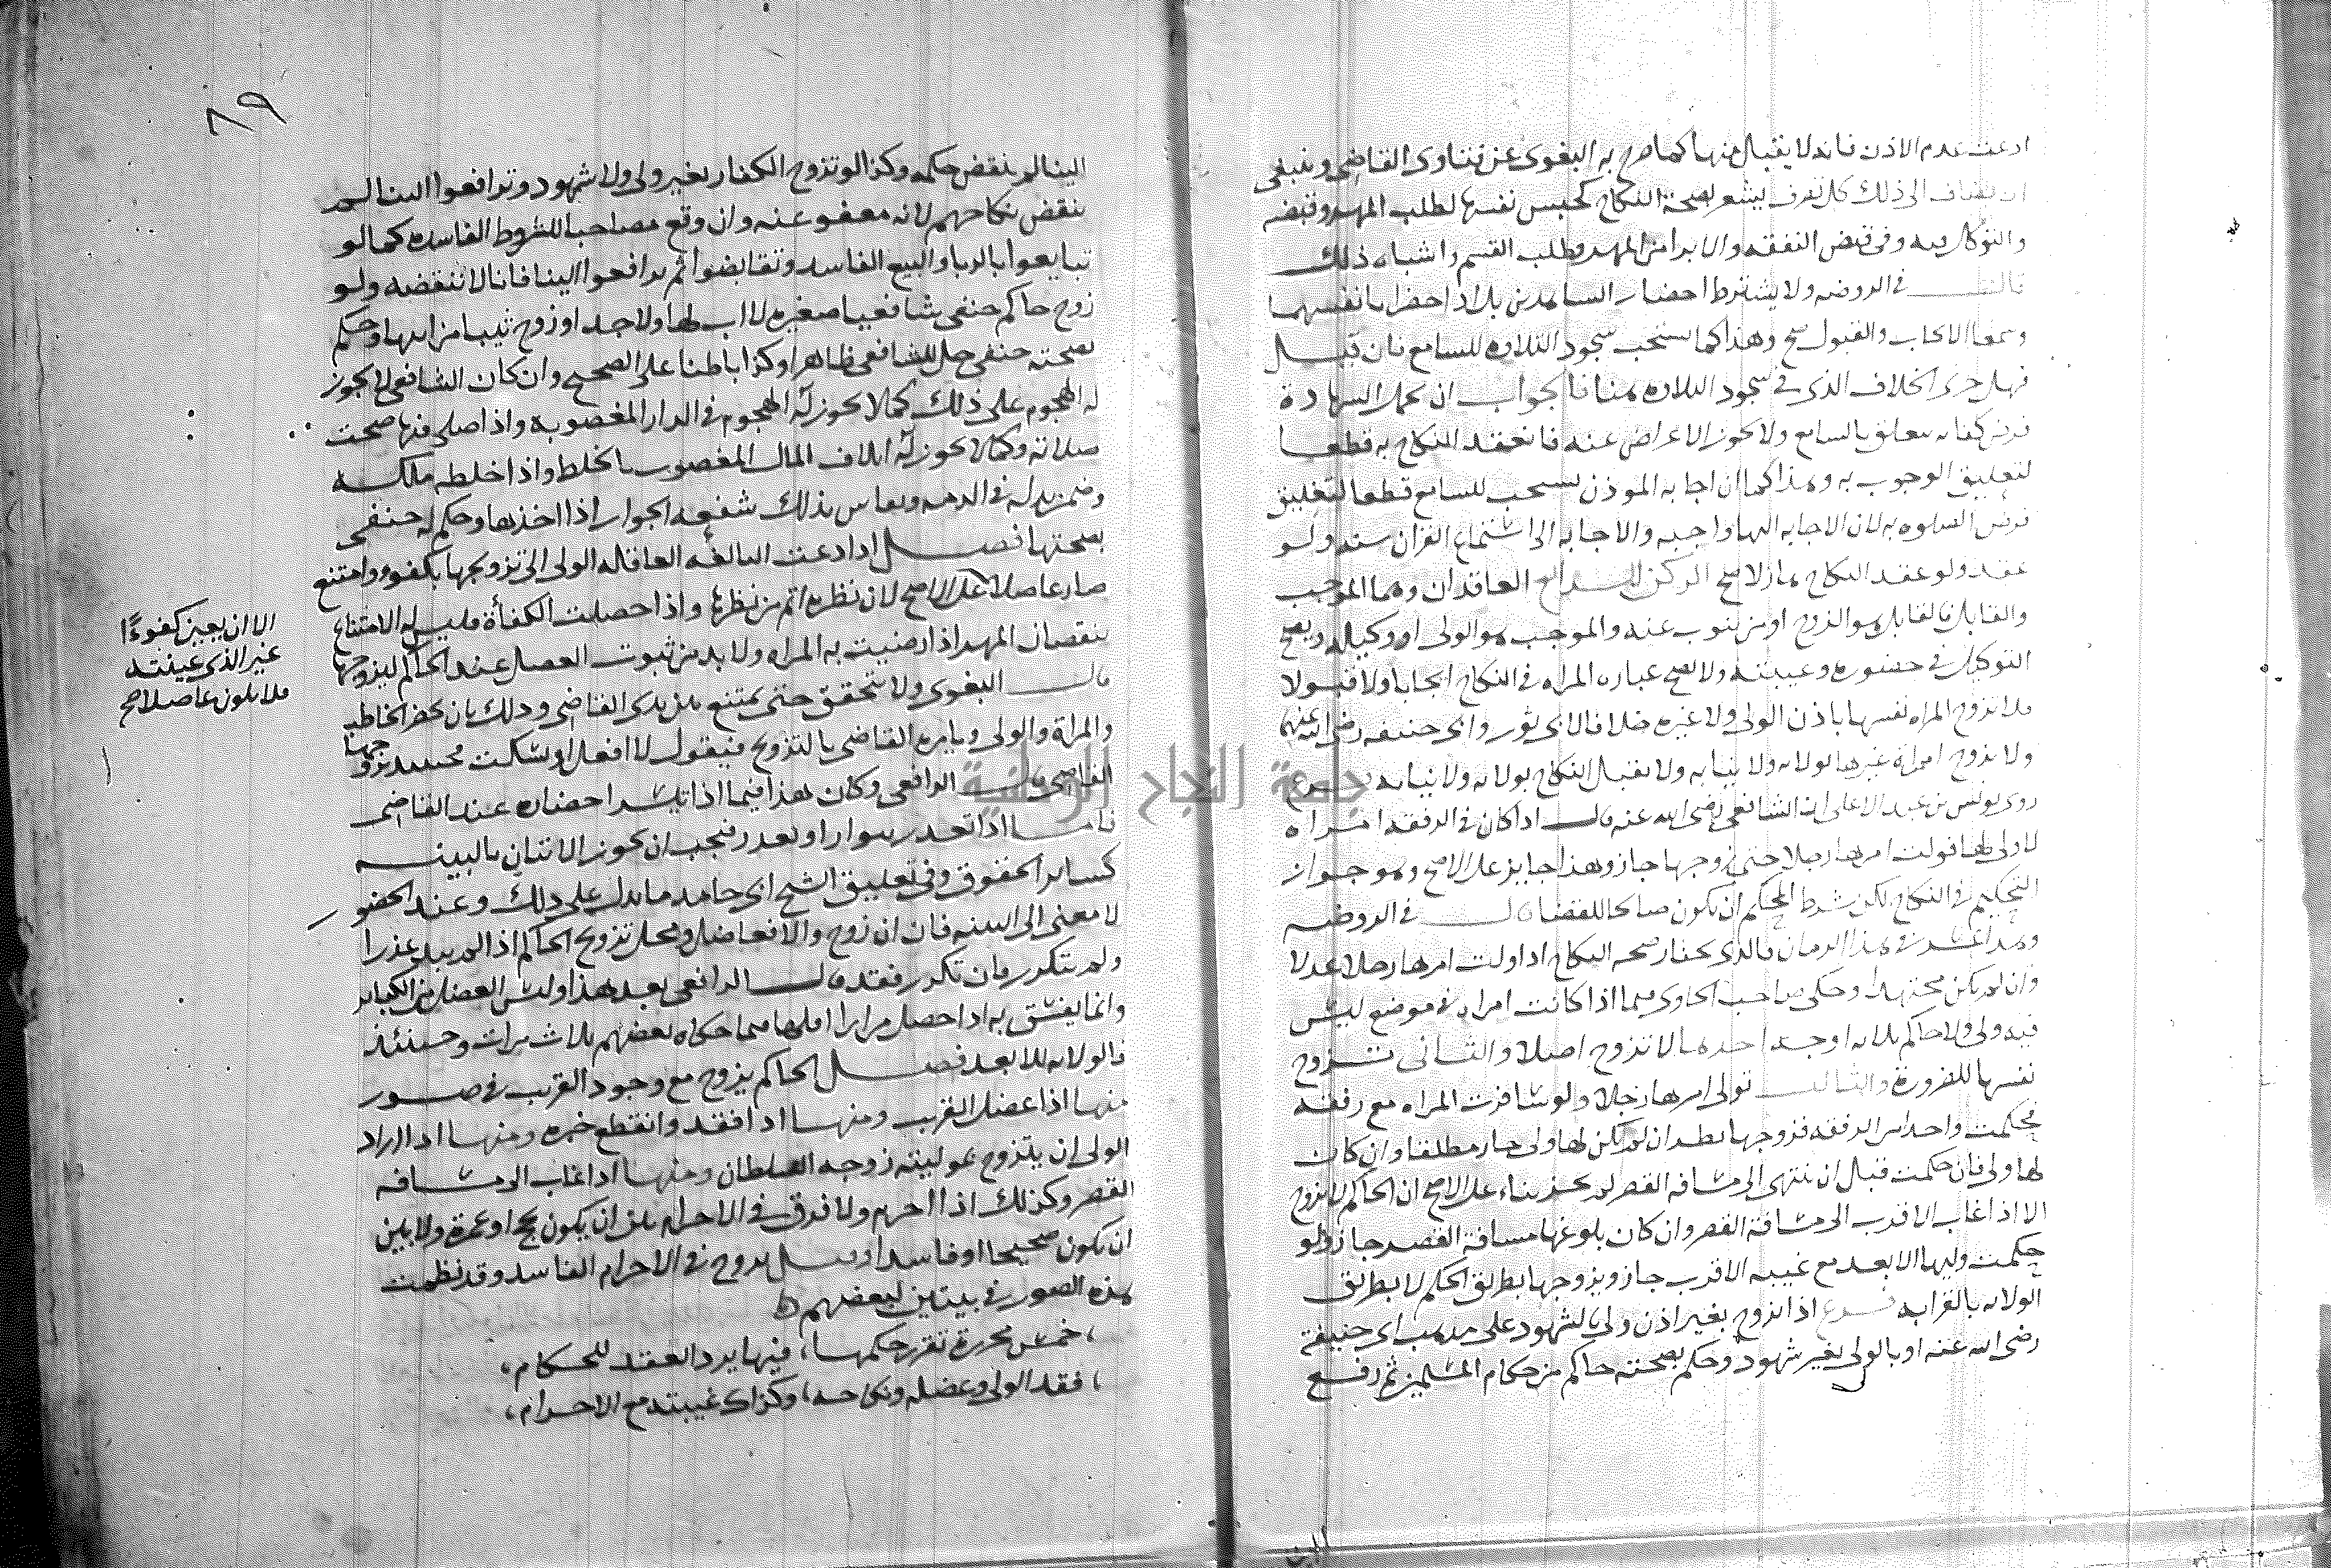 ادعت عدم الاذن فانه لا يقبل منها كما صرح به البغوى عن فتاوى القاضى وينبغى
ان يضاف الى ذلك كل تصرف يشعر بصحة النكاح كحبس نفسها لطلب المهر وقبضه
والتوكل فيه وفى قبض النفقه والابرا من المهر وطلب القسم واشباه ذلك
قال فى الروضه ولا يشترط احضار الساهدين بل اذا حضرا بانفسهما
وسمعا الايجاب والقبول صح وهذا كما يستحب سجود التلاوه للسامع فان قيل
فهل جرى الخلاف الذى فى سجود التلاوه هنا فالجواب ان تحمل الشهادة
فرض كفايه متعلق بالسامع ولا يجوز الاعراض عنه فانعقد النكاح به قطعا
لتعليق الوجوب به وهذا كما ان اجابه الموذن تستحب للسامع قطعا لتعليق
فرض الصلوه به لان الاجابه اليها واجبه والاجابه الى استماع القران سنه ولو
عقد ولو عقد النكاح هازلا صح الركن الرابع العاقدان وهما الموجب
والقابل فالقابل هو الزوج او من ينوب عنه والموجب هو الولى او وكيله ويصح
التوكيل فى حضوره وغيبته ولا تصح عباره المراه فى النكاح ايجابا ولا قبولا
فلا تزوج المراه نفسها باذن الولى ولا غيره خلافا لابى ثور وابى حنيفه رضى الله عنهما
ولا تزوج امراة غيرها بولايه ولا نيابه ولا تقبل النكاح بولايه ولا نيابه فرع
روى يونس بن عبد الاعلى ان الشافعى رضى الله عنه قال اذا كان فى الرفقه امراه
لا ولى لها فولت امرها رجلا حتى زوجها جاز وهذا جايز على الاصح وهو جواز
التحكيم فى النكاح لكن شرط المحكم ان يكون صالحا للقضا قال فى الروضه
وهذا يعسر فى هذا الزمان فالذى نختار صحه النكاح اذا ولت امرها رجلا عدلا
وان لم يكن مجتهدا وحكى صاحب الحاوى فيما اذا كانت امراه فى موضع ليس
فيه ولى ولا حاكم ثلاثه اوجه احدها لا تزوج اصلا والثانى تزوج
نفسها للضرورة والثالث تولى امرها رجلا ولو سافرت المراه مع رفقه
فحكمت واحدا من الرفقه فزوجها نظر ان لم يكن لها ولى جاز مطلقا وان كان
لها ولى فان حكمت قبل ان تنتهى الى مسافه القصر لم يجز بناء على الاصح ان الحاكم لا يزوج
الا اذا غاب الاقرب الى مسافة القصر وان كان بلوغها مسافة القصر جاز ولو
حكمت وليها الابعد مع غيبه الاقرب جاز ويزوجها بطريق الحكم لا بطريق
الولايه بالقرابه فرع اذا تزوج بغير اذن ولى بالشهود على مذهب ابى حنيفة
رضى الله عنه او بالولى بغير شهود وحكم بصحته حاكم من حكام المسلمين ثم رفع
الينا
٨٩
الينا لم ننقض حكمه وكذا لو تزوج الكفار بغير ولى ولا شهود وترافعوا الينا لم
ننقض نكاحهم لانه معفو عنه وان وقع مصاحبا للشروط الفاسده كما لو
تبايعوا بالربا والبيع الفاسد وتقابضوا ثم ترافعوا الينا فانا لا ننقضه ولو
زوج حاكم حنفى شافعيا صغيره لا اب لها ولا جد او زوج ثيبا من ابيها وحكم
بصحته حنفى حل للشافعى ظاهرا وكذا باطنا على الصحيح وان كان الشافعى لا يجوز
له الهجوم على ذلك كما لا يجوز له الهجوم فى الدار المغصوبه واذا صلى فيها صحت
صلاته وكما لا يجوز له اتلاف المال المغصوب بالخلط واذا خلطه ملكه
وضمن بدله فى الذمه ويقاس بذلك شفعه الجوار اذا اخذها وحكم له حنفى
بصحتها فصل اذا دعت البالغه العاقله الولى الى تزويجها بكفوء وامتنع
صار عاضلا على الاصح لان نظره اتم من نظرها واذا حصلت الكفأة فليس له الامتناع
الا ان يعين كفوءًا
غير الذى عينته
فلا يكون عاضلا صح
بنقصان المهر اذا رضيت به المراه ولا بد من ثبوت العضل عند الحاكم ليزوجها
قال البغوى ولا يتحقق حتى يمتنع بين يدى القاضى وذلك بان يحضر الخاطب
والمراة والولى ويامره القاضى بالتزويج فيقول لا افعل او يسكت فحينئذ يزوجها
القاضى قال الرافعى وكان هذا فيما اذا تيسر احضاره عند القاضى
فاما اذا تعذر بتوار او تعذر فيجب ان يجوز الاثبات بالبينه
كساير الحقوق وفى تعليق الشيخ ابى حامد ما يدل على ذلك وعند الحضور
لا معنى الى البينه فان ان زوج والا فعاضل ومحل تزويج الحاكم اذا لم يبد عذرا
ولم يتكرر فان تكرر فقد قال الرافعى بعد هذا وليس العضل من الكباير
وانما يفسق به اذا حصل مرارا اقلها فيما حكاه بعضهم ثلاث مرات وحينئذ
فالولايه للابعد فصل الحاكم يزوج مع وجود القريب فى صور
منها اذا عضل القريب ومنها اذا فقد وانقطع خبره ومنها اذا اراد
الولى ان يتزوج موليته زوجه السلطان ومنها اذا غاب الى مسافه
القصر وكذلك اذا احرم ولا فرق فى الاحرام بين ان يكون بحج او عمرة ولا بين
ان يكون صحيحا او فاسدا وقيل يزوج فى الاحرام الفاسد وقد نظمت
هذه الصور فى بيتين لبعضهم
، خمس محررة تقرر حكمها ، فيها يرد العقد للحكام ،
، فقد الولى وعضله ونكاحه ، وكذاك غيبته مع الاحرام ،
جامعة النجاح الوطنية